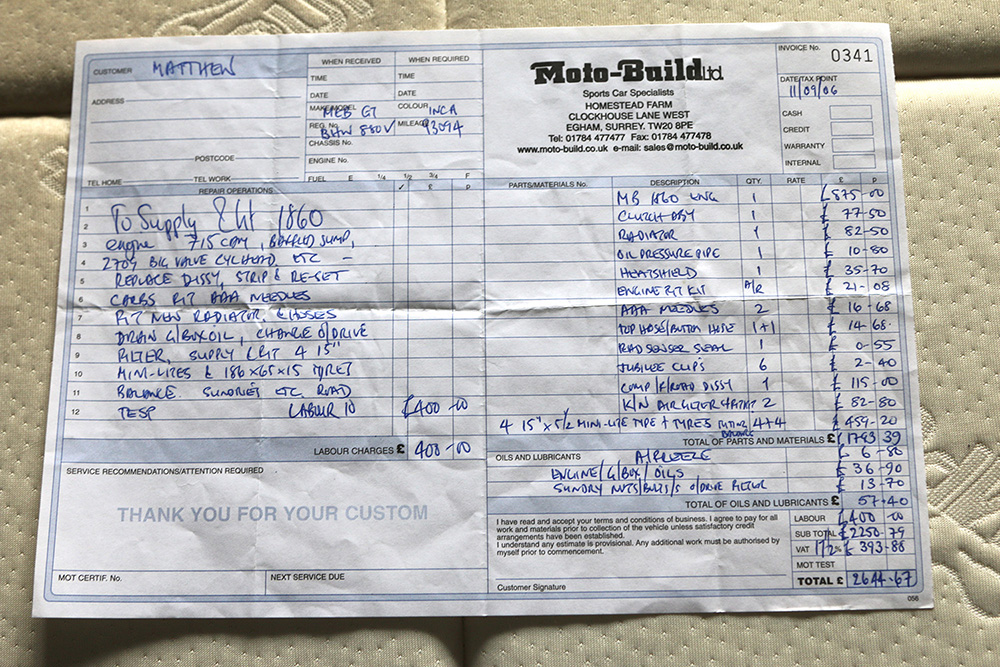 CUSTOMER MATTHEW
ADDRESS
POSTCODE
TEL HOME TEL WORK
WHEN RECEIVED WHEN REQUIRED
TIME TIME
DATE DATE
MAKE/MODEL MGB GT COLOUR INCA
REG. No. BHW 880V MILEAGE 93094
CHASSIS No.
ENGINE No.
FUEL E 1/4 1/2 3/4 F
Moto-Build Ltd
Sports Car Specialists
HOMESTEAD FARM
CLOCKHOUSE LANE WEST
EGHAM, SURREY. TW20 8PE
Tel: 01784 477477 Fax: 01784 477478
www.moto-build.co.uk e-mail: sales@moto-build.co.uk
INVOICE No. 0341
DATE/TAX POINT
11/09/06
CASH
CREDIT
WARRANTY
INTERNAL
REPAIR OPERATIONS ✓ £ p
1
2 To Supply & fit 1860
3 engine 715 CAM, BAFFLED SUMP,
4 270° BIG VALVE CYL HEAD ETC —
5 REPLACE DISSY, STRIP & RE-SET
6 CARBS FIT AAA NEEDLES
7 FIT NEW RADIATOR, & HOSES
8 DRAIN G/BOX OIL, CHANGE O/DRIVE
9 FILTER, SUPPLY & FIT 4 15"
10 MINI-LITES & 186x65x15 TYRES
11 BALANCE SUNDRIES ETC ROAD
12 TEST LABOUR 10 £400-00
LABOUR CHARGES £ 400-00
PARTS/MATERIALS No. DESCRIPTION QTY. RATE £ p
MB 1860 ENG 1 £575-00
CLUTCH ASSY 1 £77-50
RADIATOR 1 £82-50
OIL PRESSURE PIPE 1 £10-80
HEATSHIELD 1 £35-70
ENGINE FIT KIT A/R £21-08
AAA NEEDLES 2 £16-68
TOP HOSE/BOTTOM HOSE 1+1 £14-68
RAD SENSER SEAL 1 £0-55
JUBILEE CLIPS 6 £2-40
COMP F/ROAD DISSY 1 £115-00
K/N AIR FILTER 2 £82-80
4 15" x 5½ MINI-LITE TYPE + TYRES FITTING BALANCE 4+4 £459-20
TOTAL OF PARTS AND MATERIALS £ 1793 39
OILS AND LUBRICANTS A/FREEZE £6-80
ENGINE/G/BOX/OILS £36-90
SUNDRY NUTS/BOLTS/S O/DRIVE FILTER £13-70
TOTAL OF OILS AND LUBRICANTS £ 57-40
SERVICE RECOMMENDATIONS/ATTENTION REQUIRED
THANK YOU FOR YOUR CUSTOM
MOT CERTIF. No. NEXT SERVICE DUE
I have read and accept your terms and conditions of business. I agree to pay for all
work and materials prior to collection of the vehicle unless satisfactory credit
arrangements have been established.
I understand any estimate is provisional. Any additional work must be authorised by
myself prior to commencement.
Customer Signature
LABOUR £400-00
SUB TOTAL £2250-79
VAT 17½% £393-88
MOT TEST
TOTAL £ 2644-67
056